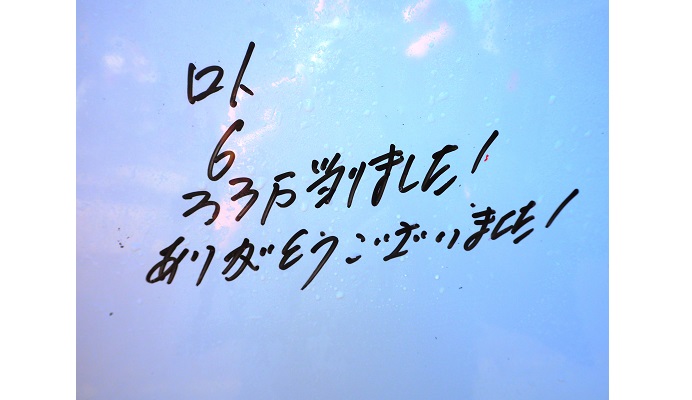 ロト
6
33万当りました!
ありがとうございました!